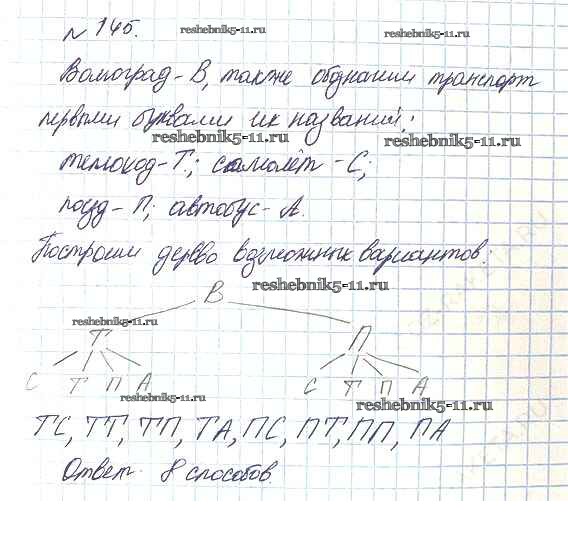 № 145. reshebnik5-11.ru reshebnik5-11.ru
Волгоград - В, также обозначим транспорт
первыми буквами их названий:
reshebnik5-11.ru reshebnik5-11.ru
теплоход - Т; самолёт - С;
поезд - П; автобус - А.
Построим дерево возможных вариантов:
В reshebnik5-11.ru
reshebnik5-11.ru
Т П
С Т П А С Т П А
reshebnik5-11.ru reshebnik5-11.ru
ТС, ТТ, ТП, ТА, ПС, ПТ, ПП, ПА
Ответ: 8 способов.